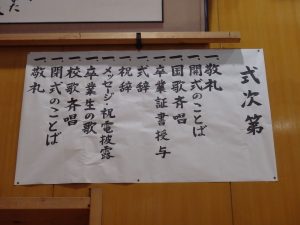 式次第
一、敬礼
一、開式のことば
一、国歌斉唱
一、卒業証書授与
一、式辞
一、祝辞
一、メッセージ・祝電披露
一、卒業生の歌
一、校歌斉唱
一、閉式のことば
一、敬礼